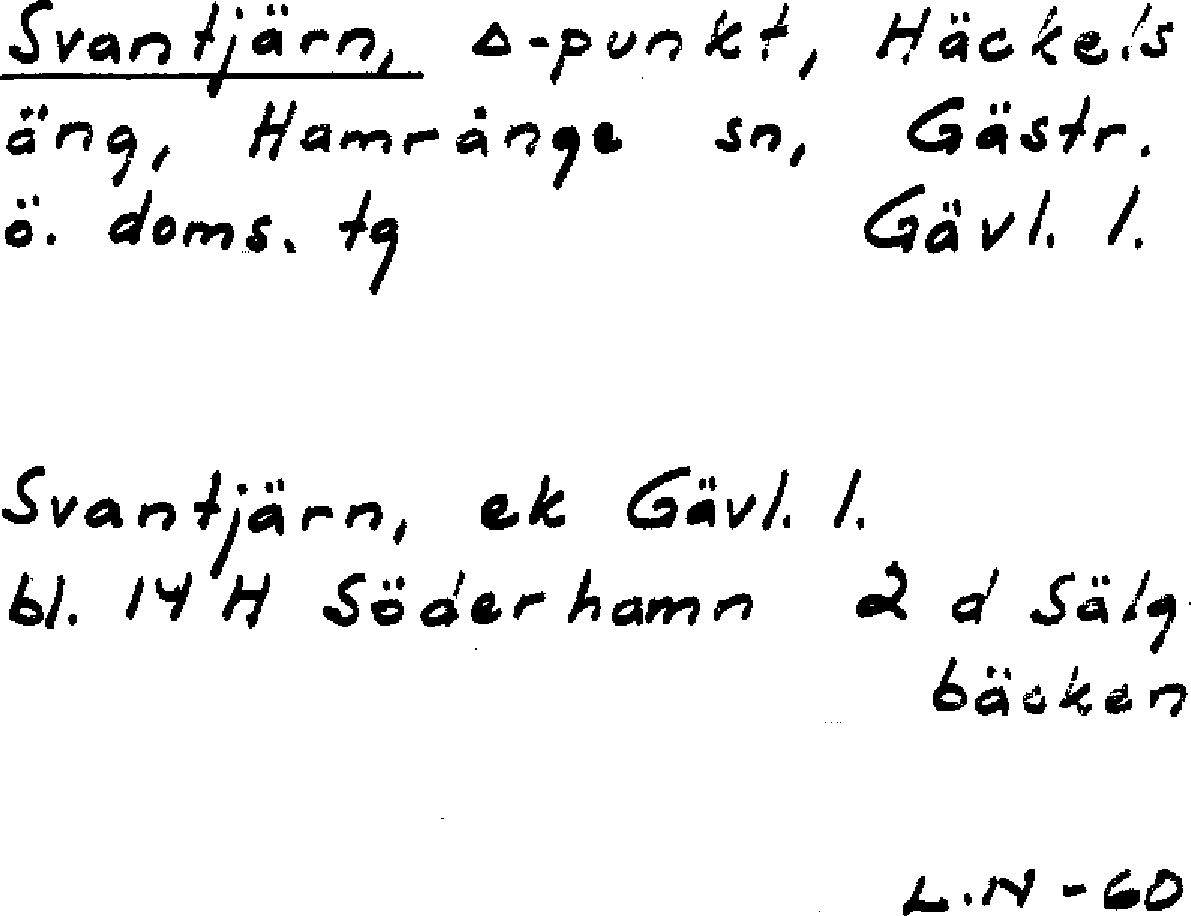 Svantjärn, Δ-punkt, Häckels
äng, Hamrånge sn, Gästr.
ö. doms. tg Gävl. l.
Svantjärn, ek Gävl. l.
bl. 14 H Söderhamn 2 d Sälg-
bäcken
L.N -60